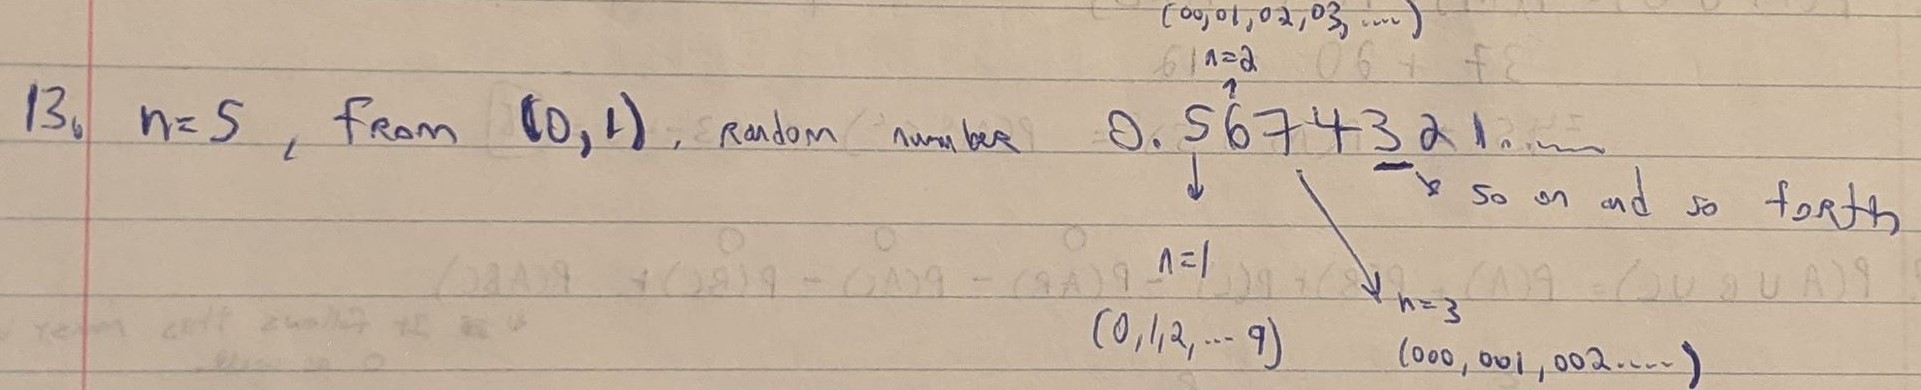 (00,01,02,03, ....)
n=2
13. n=5, From (0,1), Random number 0.5674321.....
so on and so forth
n=1
n=3
(0,1,2,...9)
(000,001,002.....)